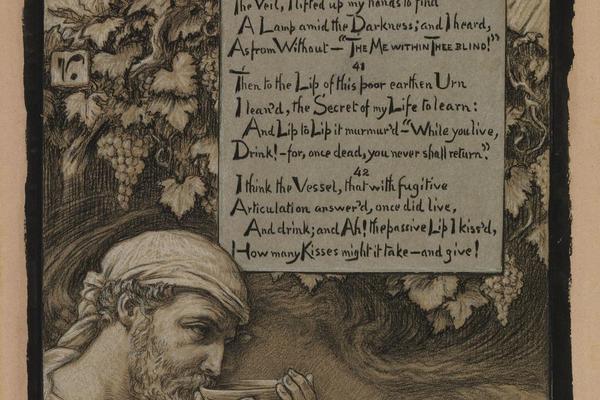 The Veil, I lifted up my hands to find
A Lamp amid the Darkness; and I heard,
As from Without—"THE ME WITHIN THEE BLIND!"
41
Then to the Lip of this poor earthen Urn
I lean'd, the Secret of my Life to learn:
And Lip to Lip it murmur'd—"While you live,
Drink!—for, once dead, you never shall return."
42
I think the Vessel, that with fugitive
Articulation answer'd, once did live,
And drink; and Ah! the passive Lip I kiss'd,
How many Kisses might it take—and give!